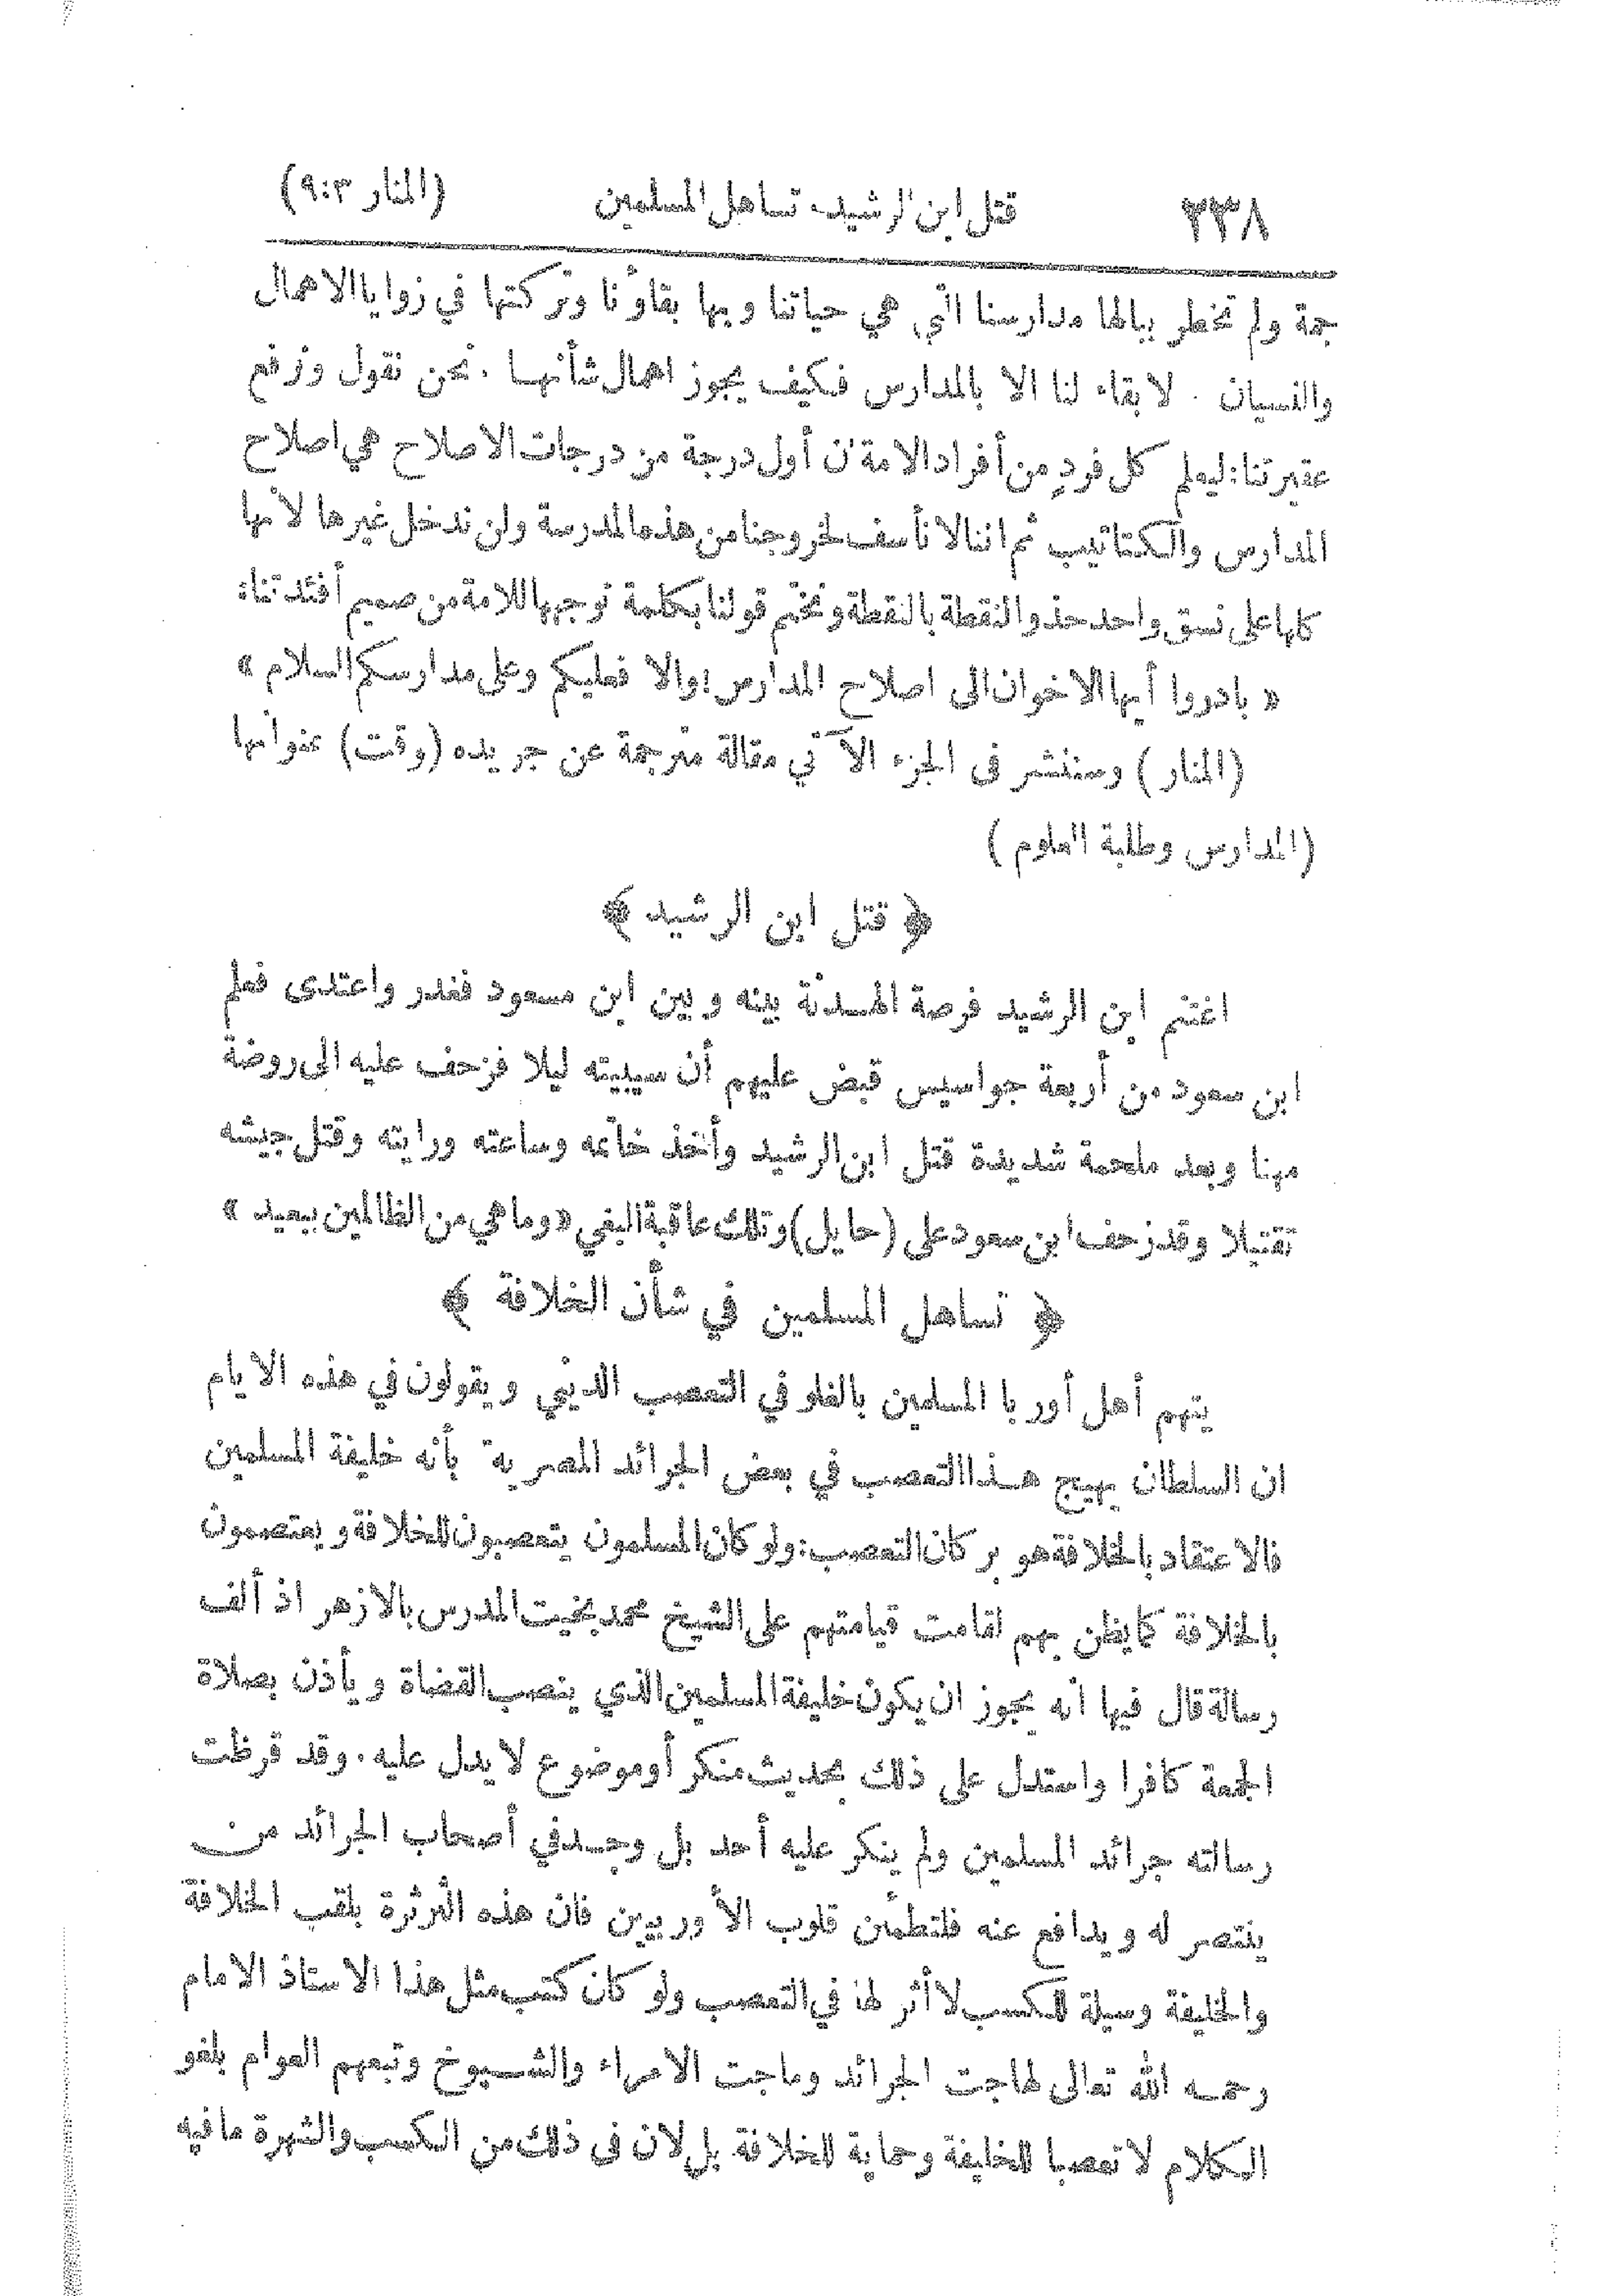 ٢٣٨ قتل ابن الرشيد. تساهل المسلمين (المنار ٩:٣)
جمة ولم تخطر ببالها مدارسنا التي هي حياتنا وبها بقاؤنا وتركتها في زوايا الاهمال
والنسيان . لا بقاء لنا الا بالمدارس فكيف يجوز اهمال شأنها . نحن نقول ونرفع
عقيرتنا : ليعلم كل فردٍ من أفراد الامة ان أول درجة من درجات الاصلاح هي اصلاح
المدارس والكتاتيب ثم اننا لا نأسف لخروجنا من هذه المدرسة ولن ندخل غيرها لانها
كلها على نسق واحد حذو النقطة بالنقطة ونختم قولنا بكلمة نوجهها للامة من صميم أفئدتنا:
« بادروا أيها الاخوان الى اصلاح المدارس ! والا فعليكم وعلى مدارسكم السلام »
(المنار) وسننشر فى الجزء الآتي مقالة مترجمة عن جريده (وقت) عنوانها
(المدارس وطلبة العلوم)
﴿ قتل ابن الرشيد ﴾
اغتنم ابن الرشيد فرصة الهدنة بينه وبين ابن مسعود فغدر واعتدى فعلم
ابن سعود من أربعة جواسيس قبض عليهم أن سيبيته ليلا فزحف عليه الى روضة
مهنا وبعد ملحمة شديدة قتل ابن الرشيد وأخذ خاتمه وساعته ورايته وقتل جيشه
تقتيلا وقد زحف ابن سعود على (حايل) وتلك عاقبة البغي « وما هي من الظالمين ببعيد »
﴿ تساهل المسلمين في شأن الخلافة ﴾
يتهم أهل أوربا المسلمين بالغلو في التعصب الديني ويقولون في هذه الايام
ان السلطان يهيج هذا التعصب في بعض الجرائد المصرية بأنه خليفة المسلمين
فالاعتقاد بالخلافة هو بركان التعصب : ولو كان المسلمون يتعصبون للخلافة ويعتصمون
بالخلافة كما يظن بهم لقامت قيامتهم على الشيخ محمد بخيت المدرس بالازهر اذ ألف
رسالة قال فيها انه يجوز ان يكون خليفة المسلمين الذي ينصب القضاة ويأذن بصلاة
الجمعة كافرا واستدل على ذلك بحديث منكر أو موضوع لا يدل عليه . وقد قرظت
رسالته جرائد المسلمين ولم ينكر عليه أحد بل وجد في أصحاب الجرائد من
ينتصر له ويدافع عنه فلتطمئن قلوب الأوربيين فان هذه الثرثرة بلقب الخلافة
والخليفة وسيلة للكسب لا أثر لها في التعصب ولو كان كتب مثل هذا الاستاذ الامام
رحمه الله تعالى لهاجت الجرائد وماجت الامراء والشيوخ وتبعهم العوام بلغو
الكلام لا تعصبا للخليفة وحماية للخلافة بل لان فى ذلك من الكسب والشهرة ما فيه